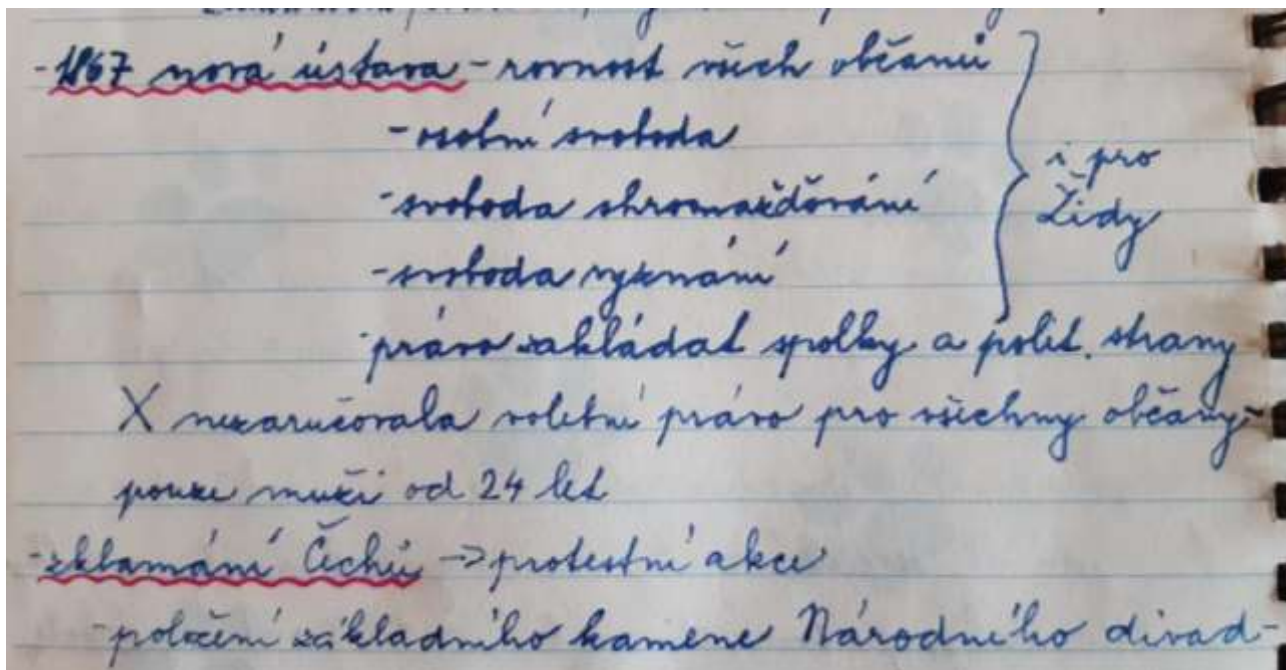 - 1867 nová ústava - rovnost všech občanů
- osobní svoboda
- svoboda shromažďování
i pro
Židy
- svoboda vyznání
- právo zakládat spolky a polit. strany
X nezaručovala volební právo pro všechny občany -
pouze muži od 24 let
- zklamání Čechů -> protestní akce
- položení základního kamene Národního divad-